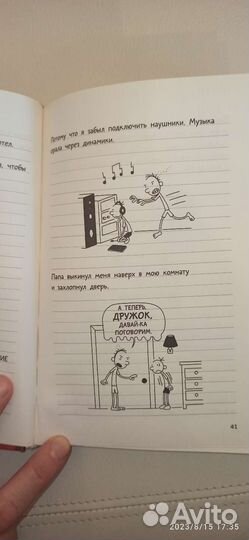 отел.
чтобы
Потому что я забыл подключить наушники. Музыка
орала через динамики.
Папа выкинул меня наверх в мою комнату
и захлопнул дверь.
А ТЕПЕРЬ,
ДРУЖОК,
ДАВАЙ-КА
ПОГОВОРИМ.
ИЕ
41
Avito
2023/8/15 17:35